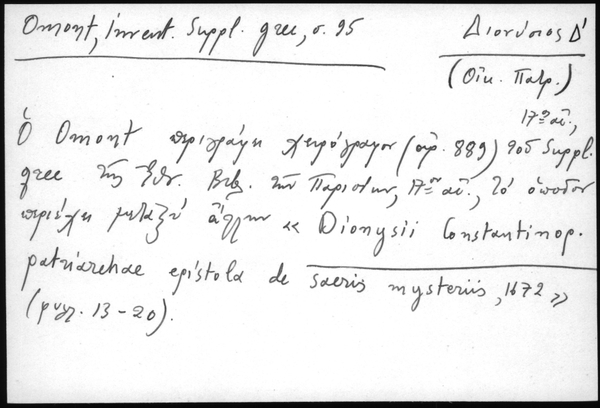 Omont, Invent. Suppl. grec, σ. 95
Διονύσιος Δ'
(Οἰκ. Πατρ.)
17ος αἰ.,
Ὁ Omont περιγράφει χειρόγραφον (ἀρ. 889) τοῦ Suppl.
grec τῆς Ἐθν. Βιβ. τῶν Παρισίων, 17ου αἰ., τὸ ὁποῖον
περιέχει μεταξὺ ἄλλων « Dionysii Constantinop.
patriarchae epistola de sacris mysteriis, 1672 »
(φυλ. 13-20).